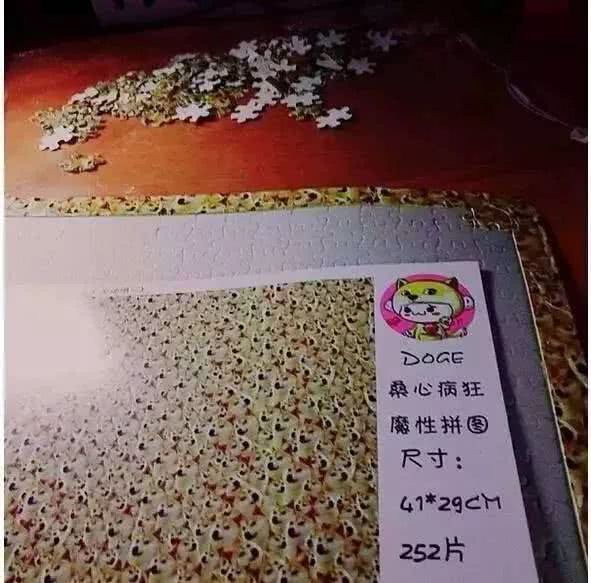 DOGE
桑心病狂
魔性拼图
尺寸：
41*29CM
252片